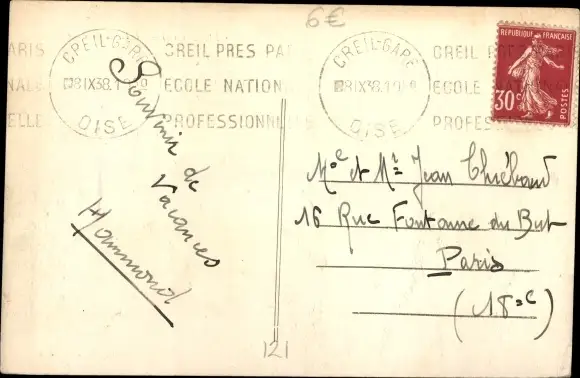 6€
CREIL-GARE
8 IX 38
OISE
CREIL PRES PA
ECOLE NATION
PROFESSIONN
CREIL-GARE
OISE
CREIL
ECOLE
PROFES
REPUBLIQUE FRANÇAISE
30c
POSTES
Souvenir de
Vacances
Hammond
Me et Mr Jean Thiébaud
16 Rue Fontaine du But
Paris
(18e)
121